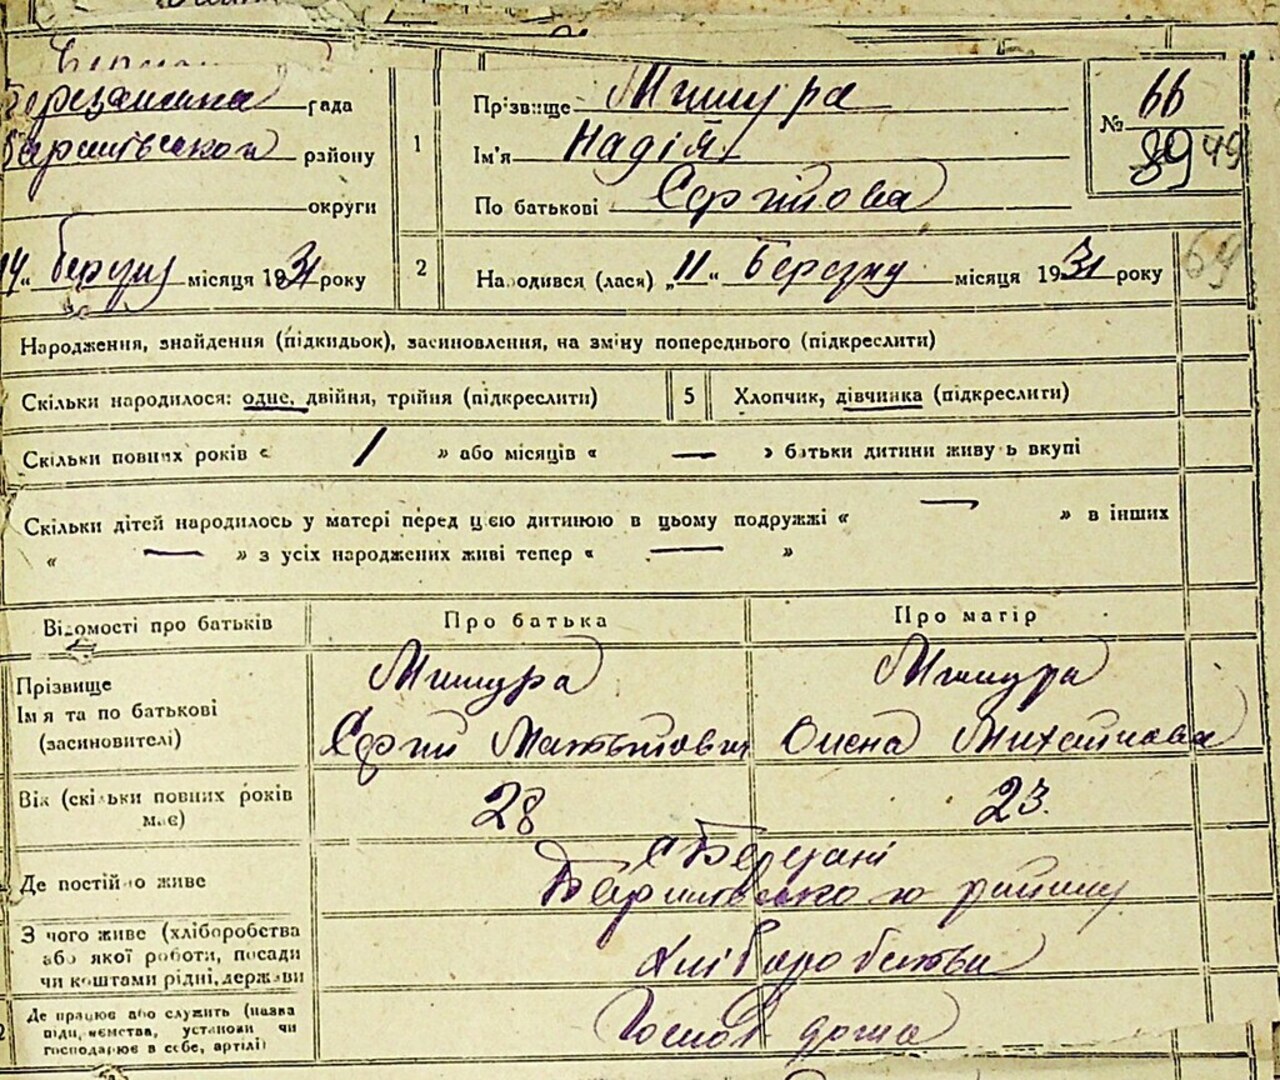 Березанська рада
Баришівського району
округи
14 " березня місяця 1931 року
1
Прізвище Мишура
Ім'я Надія
По батькові Сергійова
№ 66
89 49
2
Народився (лася) „ 11 " березня місяця 1931 року
69
Народження, знайдення (підкидьок), засиновлення, на зміну попереднього (підкреслити)
Скільки народилося: одне, двійня, трійня (підкреслити)
5 Хлопчик, дівчинка (підкреслити)
Скільки повних років « 1 » або місяців « — » батьки дитини живуть вкупі
Скільки дітей народилось у матері перед цією дитиною в цьому подружжі « — » в інших
« — » з усіх народжених живі тепер « — »
Відомості про батьків Про батька Про матір
Прізвище
Ім'я та по батькові
(засиновителі)
Мишура
Сергій Матвійович
Мишура
Олена Михайлова
Вік (скільки повних років
має)
28 23
Де постійно живе
с Березані
Баришівського району
З чого живе (хліборобства
або якої роботи, посади
чи коштами рідні, держави
Хліборобства
Де працює або служить (назва
підприємства, установи чи
господарює в себе, артілі)
Госпо дома